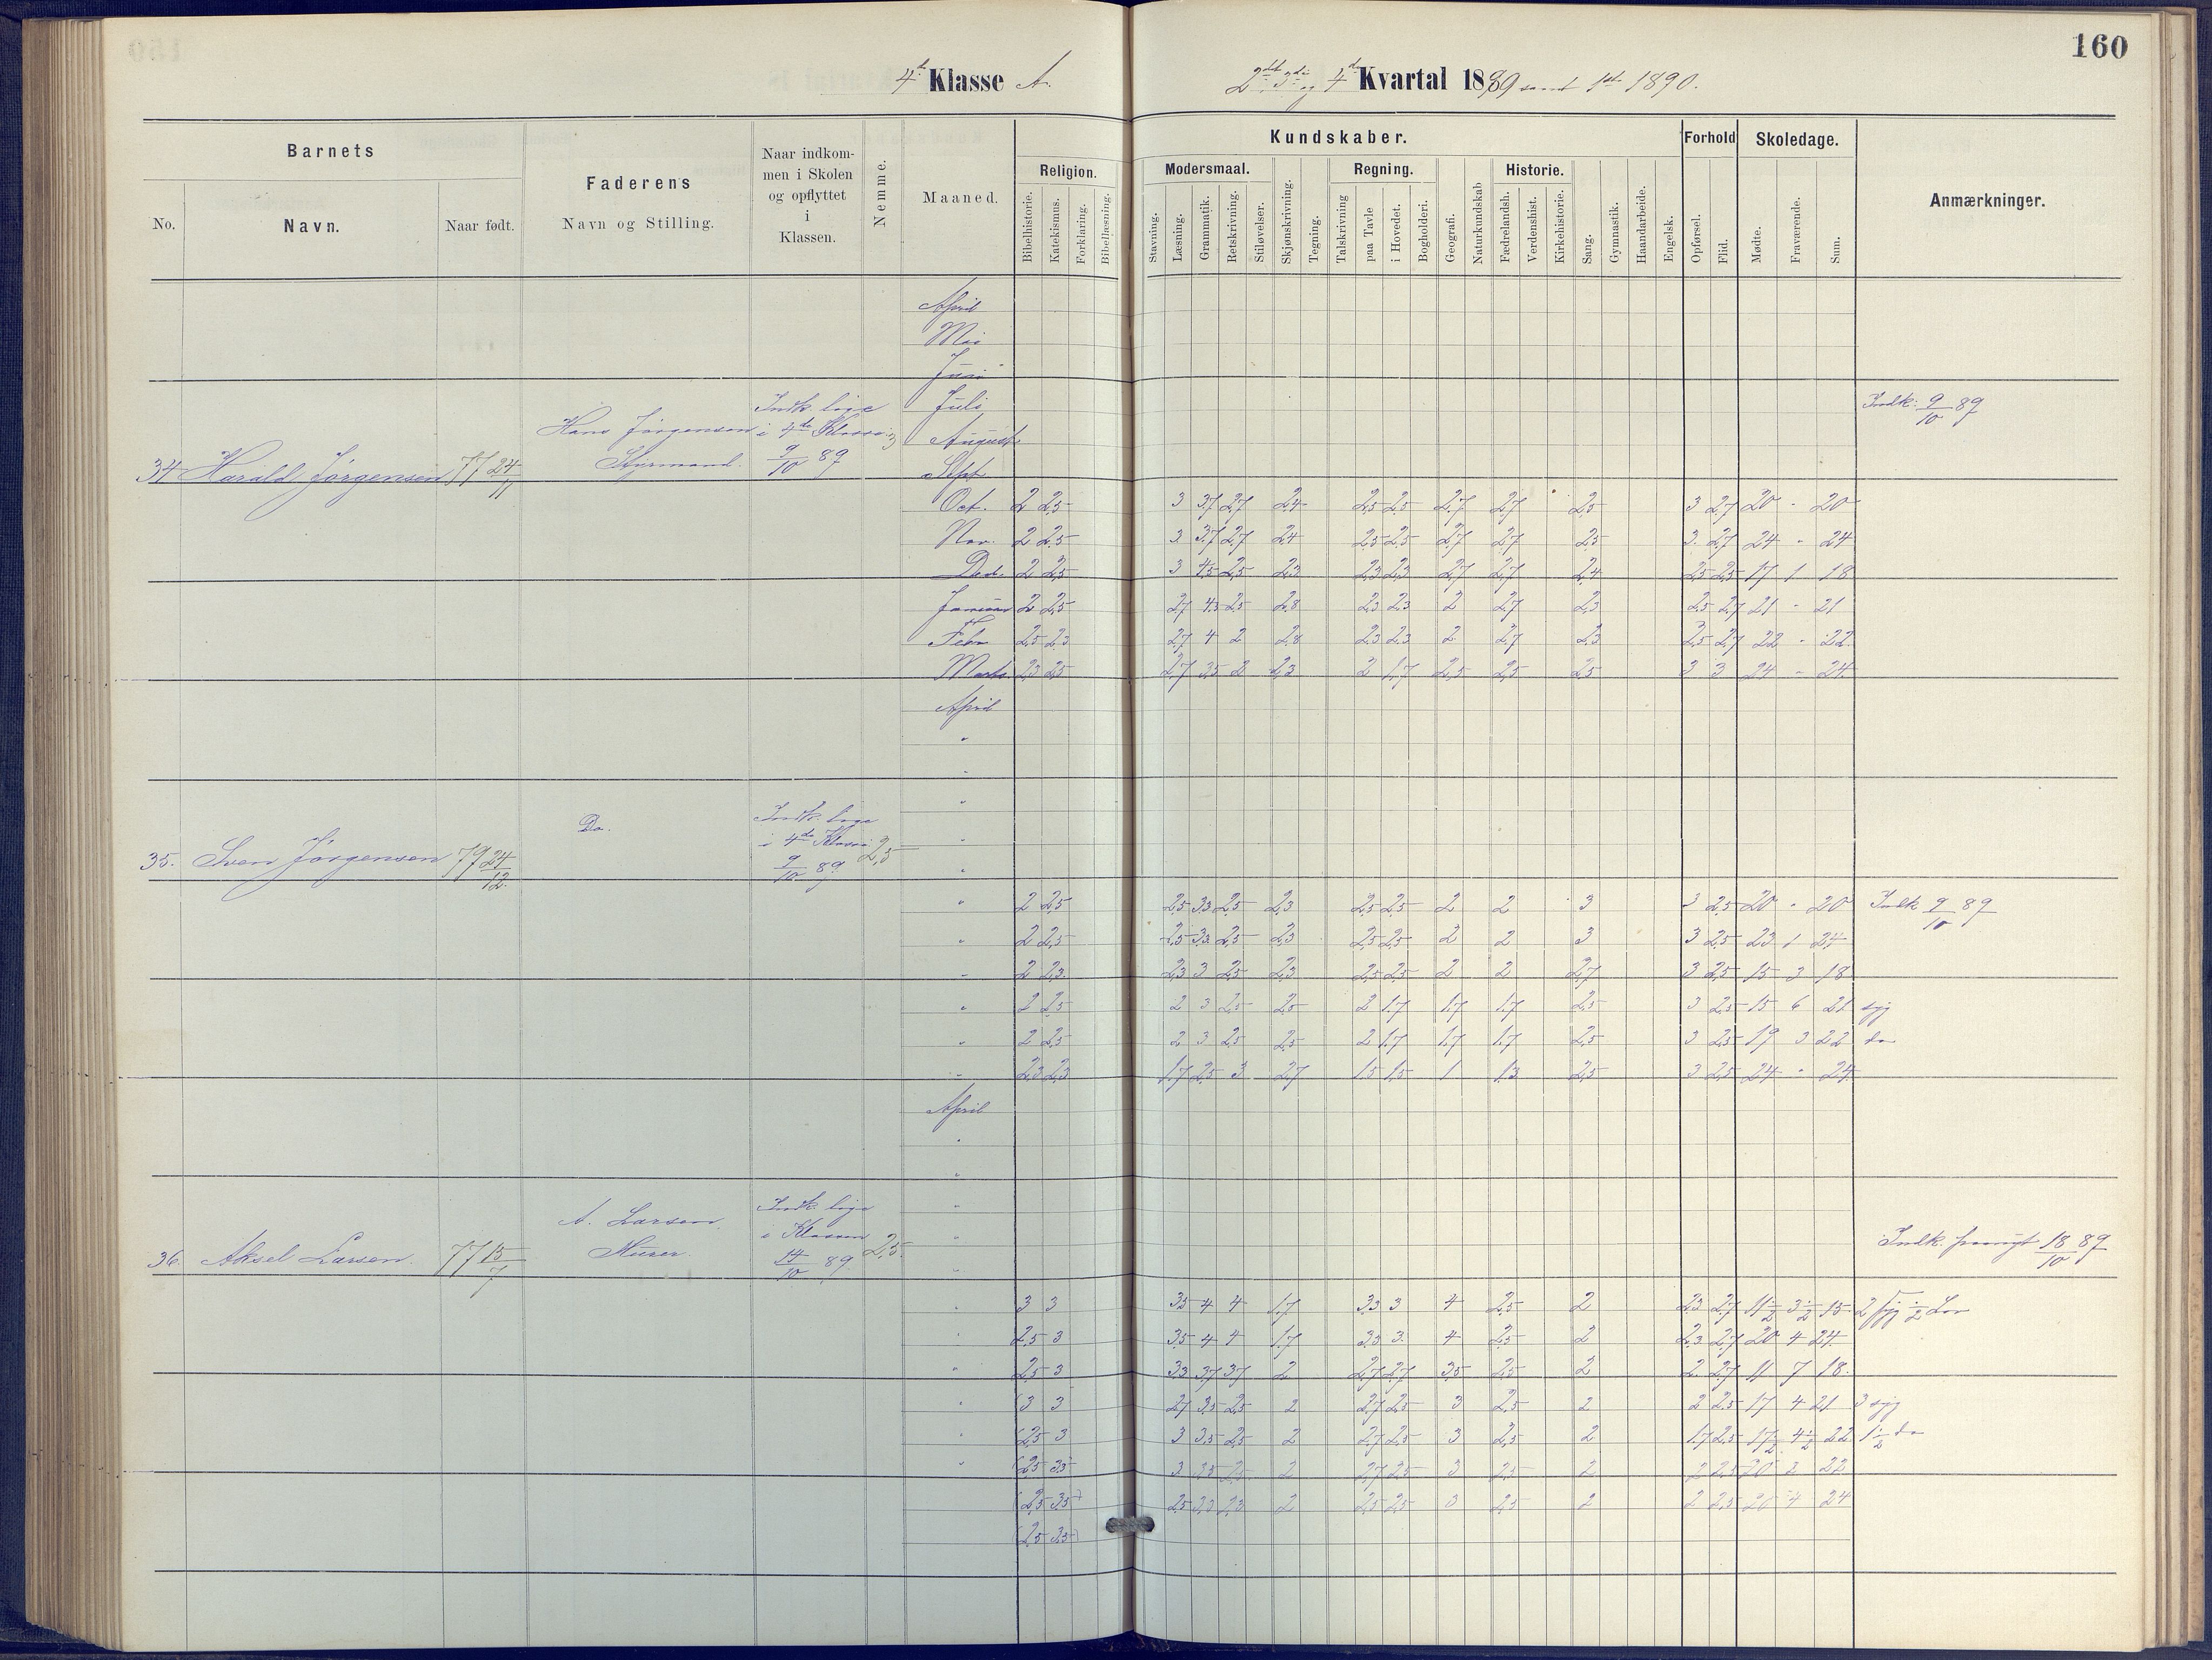 160
4de Klasse A.
2det 3die og 4de Kvartal 1889 samt 1ste 1890.
Barnets
No.
Navn.
Naar født.
Faderens
Navn og Stilling.
Naar indkom-
men i Skolen
og opflyttet
i
Klassen.
Nemme.
Maaned.
Kundskaber.
Religion.
Bibelhistorie.
Katekismus.
Forklaring.
Bibellæsning.
Modersmaal.
Stavning.
Læsning.
Grammatik.
Retskrivning.
Stiløvelser.
Skjønskrivning.
Tegning.
Regning.
Talskrivning
paa Tavle
i Hovedet.
Bogholderi.
Geografi.
Naturkundskab
Historie.
Fædrelandsh.
Verdenshist.
Kirkehistorie.
Sang.
Gymnastik.
Haandarbeide.
Engelsk.
Forhold
Opførsel.
Flid.
Skoledage.
Mødte.
Fraværende.
Sum.
Anmærkninger.
April
Mai
Juni
Juli
August
Sept
34 Harald Jörgensen 77 24/11 Hans Jörgensen Styrmand. Indk. lige i 4de Klasse 9/10 89 3 Indk: 9/10 89
Oct. 2 2,5 3 3,7 2,7 2,4 2,5 2,5 2,7 2,7 2,5 3 2,7 20 - 20
Nov. 2 2,5 3 3,7 2,7 2,4 2,5 2,5 2,7 2,7 2,5 3 2,7 24 - 24
Dec. 2 2,5 3 4,5 2,5 2,3 2,3 2,3 2,7 2,7 2,4 2,5 2,5 17 1 18
Januar 2 2,5 2,7 4,5 2,5 2,8 2,3 2,3 2 2,7 2,3 2,5 2,7 21 - 21
Febr 2,5 2,3 2,7 4 2 2,8 2,3 2,3 2 2,7 2,3 2,5 2,7 22 - 22
Marts 2,3 2,5 2,7 3,5 2 2,3 2 1,7 2,5 2,5 2,5 3 3 24 - 24
April
35. Sven Jörgensen 79 24/12 Do. Indk. lige i 4de Klasse 9/10 89 2,5
" 2 2,5 2,5 3,3 2,5 2,3 2,5 2,5 2 2 3 3 2,5 20 - 20 Indk 9/10 89
" 2 2,5 2,5 3,3 2,5 2,3 2,5 2,5 2 2 3 3 2,5 23 1 24
" 2 2,3 2,3 3 2,5 2,3 2,5 2,5 2 2 2,7 3 2,5 15 3 18
" 2 2,5 2 3 2,5 2,5 2 1,7 1,7 1,7 2,5 3 2,5 15 6 21 syg
" 2 2,5 2 3 2,5 2,5 2 1,7 1,7 1,7 2,5 3 2,5 19 3 22 do
" 2,3 2,3 1,7 2,5 3 2,7 1,5 1,5 1 1,3 2,5 3 2,5 24 - 24
April
36. Aksel Larsen. 77 15/7 A. Larsen Murer. Indk. lige i Klassen 14/10 89 2,5 Indk. 18/10 89
" 3 3 3,5 4 4 1,7 3,3 3 4 2,5 2 2,3 2,7 11 1/2 3 1/2 15 2 syg 1/2 Lov
" 2,5 3 3,5 4 4 1,7 3,3 3 4 2,5 2 2,3 2,7 20 4 24
" 2,5 3 3,3 3,7 3,7 2 2,7 2,7 3,5 2,5 2 2 2,7 11 7 18
" 3 3 2,7 3,5 2,5 2 2,7 2,5 3 2,5 2 2 2,5 17 4 21 3 syg
" 2,5 3 3 3,5 2,5 2 2,7 2,5 3 2,5 2 1,7 2,5 17 1/2 4 1/2 22 1 1/2 do
" 2,5 3,5 3 3,5 2,5 2 2,7 2,5 3 2,5 2 2 2,5 20 2 22
(2,5 3,5) 2,5 2 2,5 2,5 3 2,5 2 2 2,5 20 4 24
(2,5 3,5)